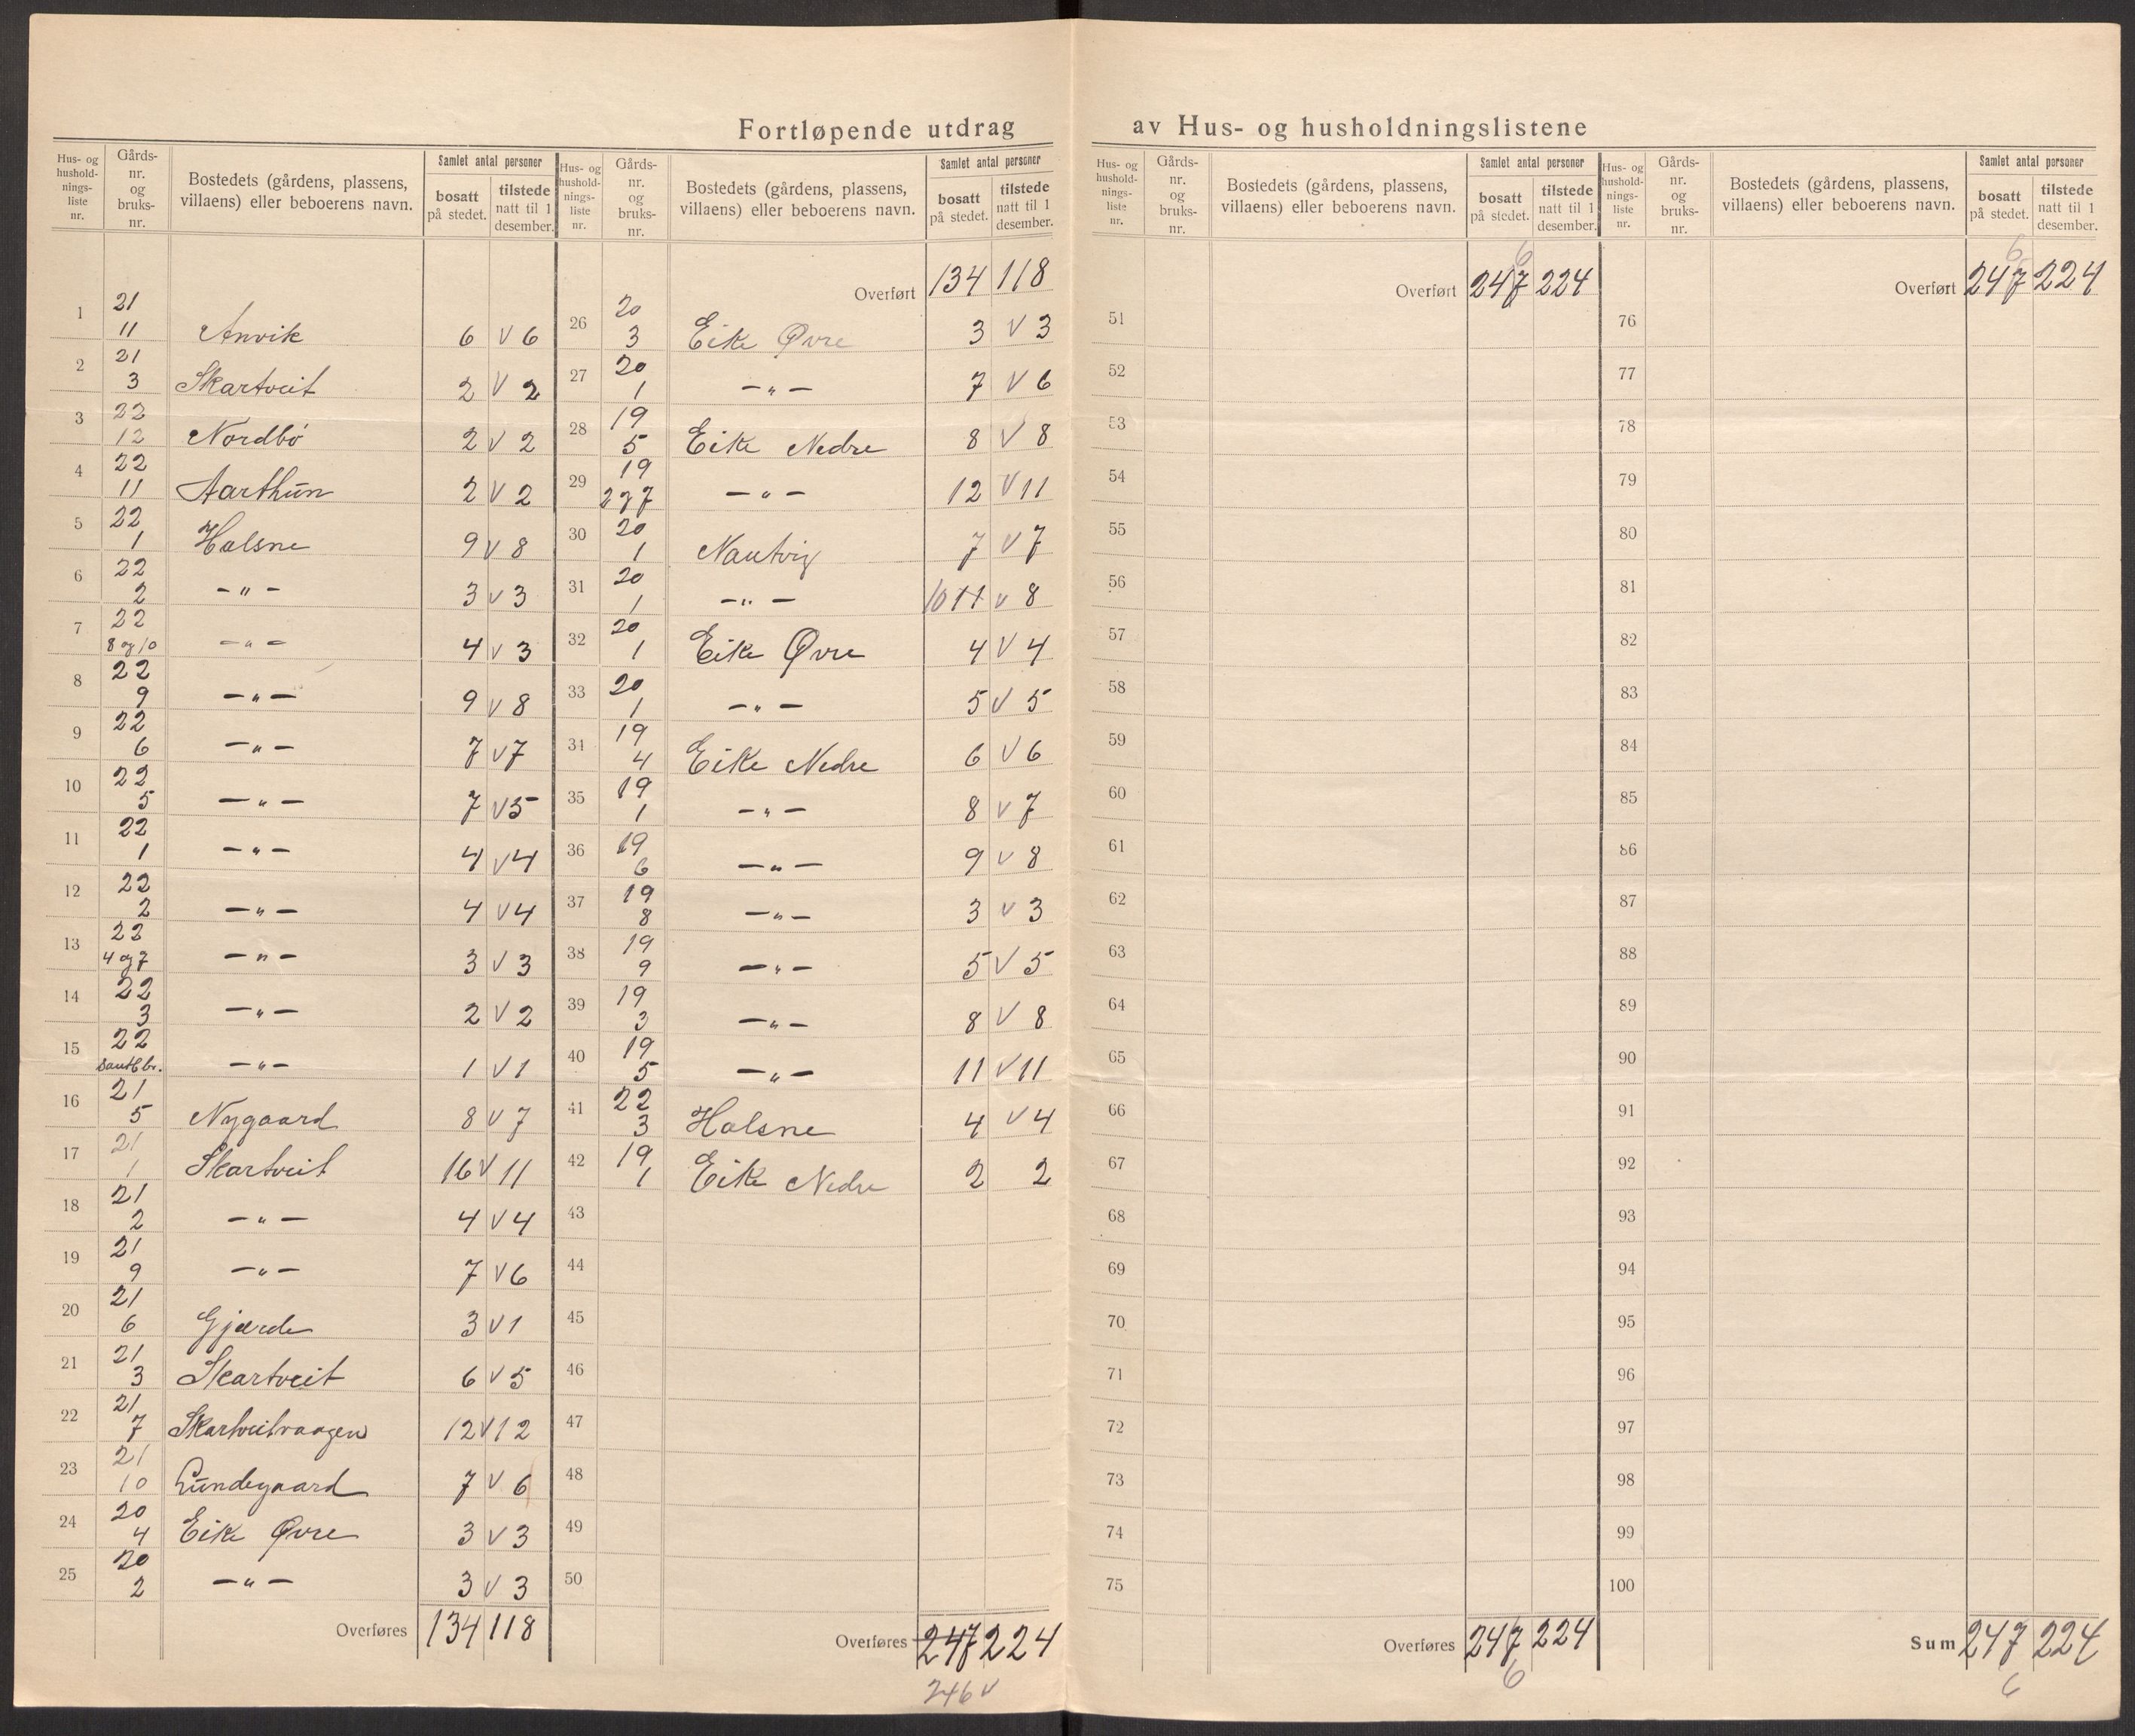 Fortløpende utdrag av Hus- og husholdningslistene
Hus- og hushold-nings-liste nr. | Gårds-nr. og bruks-nr. | Bostedets (gårdens, plassens, villaens) eller beboerens navn. | Samlet antal personer | bosatt på stedet. | tilstede natt til 1 desember.
1 | 21 11 | Anvik | 6 v 6
2 | 21 3 | Skartveit | 2 v 2
3 | 22 12 | Nordbö | 2 v 2
4 | 22 11 | Aarthun | 2 v 2
5 | 22 1 | Halsne | 9 v 8
6 | 22 2 | -"- | 3 v 3
7 | 22 8 og 10 | -"- | 4 v 3
8 | 22 9 | -"- | 9 v 8
9 | 22 6 | -"- | 7 v 7
10 | 22 5 | -"- | 7 v 5
11 | 22 1 | -"- | 4 v 4
12 | 22 2 | -"- | 4 v 4
13 | 22 4 og 7 | -"- | 3 v 3
14 | 22 3 | -"- | 2 v 2
15 | 22 | -"- | 1 v 1
16 | 21 5 | Nygaard | 8 v 7
17 | 21 1 | Skartveit | 16 v 11
18 | 21 2 | -"- | 4 v 4
19 | 21 9 | -"- | 7 v 6
20 | 21 6 | Gjærde | 3 v 1
21 | 21 3 | Skartveit | 6 v 5
22 | 21 7 | Skartveitvaagen | 12 v 12
23 | 21 10 | Lundegaard | 7 v 6
24 | 20 4 | Eike Øvre | 3 v 3
25 | 20 2 | -"- | 3 v 3
Overføres 134 118
Hus- og hushold-nings-liste nr. | Gårds-nr. og bruks-nr. | Bostedets (gårdens, plassens, villaens) eller beboerens navn. | Samlet antal personer | bosatt på stedet. | tilstede natt til 1 desember.
Overført 134 118
26 | 20 3 | Eike Øvre | 3 v 3
27 | 20 1 | -"- | 7 v 6
28 | 19 5 | Eike Nedre | 8 v 8
29 | 19 2 og 7 | -"- | 12 v 11
30 | 20 1 | Nautvig | 7 v 7
31 | 20 1 | -"- | 10 11 v 8
32 | 20 1 | Eike Øvre | 4 v 4
33 | 20 1 | -"- | 5 v 5
31 | 19 4 | Eike Nedre | 6 v 6
35 | 19 1 | -"- | 8 v 7
36 | 19 6 | -"- | 9 v 8
37 | 19 8 | -"- | 3 v 3
38 | 19 9 | -"- | 5 v 5
39 | 19 3 | -"- | 8 v 8
40 | 19 5 | -"- | 11 v 11
41 | 22 3 | Halsne | 4 v 4
42 | 19 1 | Eike Nedre | 2 2
43
44
45
46
47
48
49
50
Overføres 247 224
246 v
Hus- og hushold-nings-liste nr. | Gårds-nr. og bruks-nr. | Bostedets (gårdens, plassens, villaens) eller beboerens navn. | Samlet antal personer | bosatt på stedet. | tilstede natt til 1 desember.
6
Overført 247 224
51
52
53
54
55
56
57
58
59
60
61
62
63
64
65
66
67
68
69
70
71
72
73
74
75
Overføres 247 224
6
Hus- og hushold-nings-liste nr. | Gårds-nr. og bruks-nr. | Bostedets (gårdens, plassens, villaens) eller beboerens navn. | Samlet antal personer | bosatt på stedet. | tilstede natt til 1 desember.
6
Overført 247 224
76
77
78
79
80
81
82
83
84
85
86
87
88
89
90
91
92
93
94
95
96
97
98
99
100
Sum 247 224
6